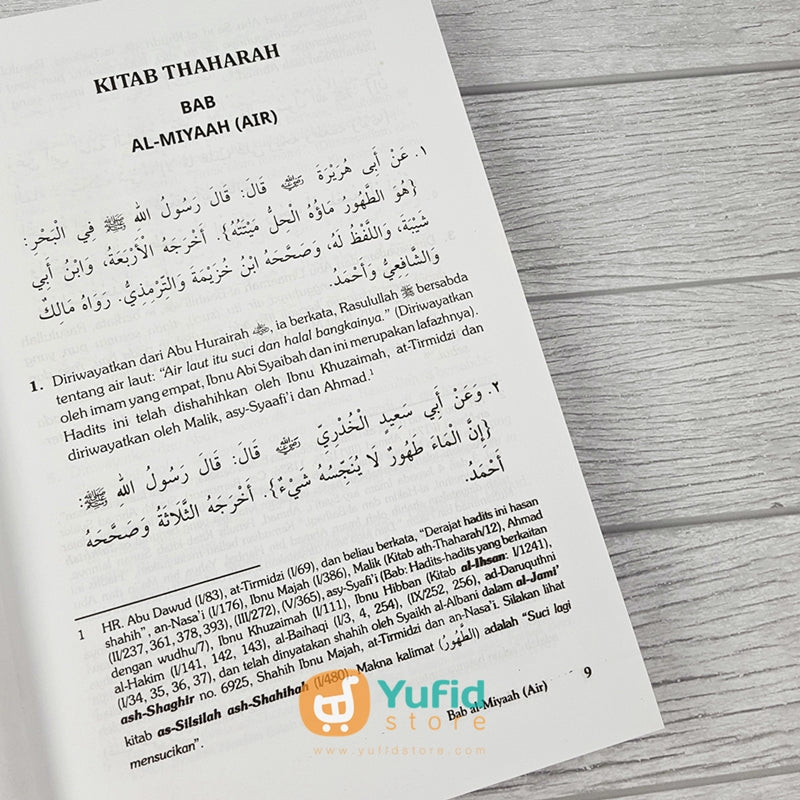 KITAB THAHARAH
BAB
AL-MIYAAH (AIR)
١. عَنْ أَبِي هُرَيْرَةَ ﷺ قَالَ: قَالَ رَسُولُ اللهِ ﷺ فِي الْبَحْرِ:
{هُوَ الطَّهُورُ مَاؤُهُ الْحِلُّ مَيْتَتُهُ}. أَخْرَجَهُ الْأَرْبَعَةُ، وَابْنُ أَبِي
شَيْبَةَ، وَاللَّفْظُ لَهُ، وَصَحَّحَهُ ابْنُ خُزَيْمَةَ وَالتِّرْمِذِيُّ. رَوَاهُ مَالِكٌ
وَالشَّافِعِيُّ وَأَحْمَدُ.
1. Diriwayatkan dari Abu Hurairah, ia berkata, Rasulullah ﷺ bersabda
tentang air laut: “Air laut itu suci dan halal bangkainya.” (Diriwayatkan
oleh imam yang empat, Ibnu Abi Syaibah dan ini merupakan lafazhnya).
Hadits ini telah dishahihkan oleh Ibnu Khuzaimah, at-Tirmidzi dan
diriwayatkan oleh Malik, asy-Syaafi'i dan Ahmad.¹
٢. وَعَنْ أَبِي سَعِيدٍ الْخُدْرِيِّ قَالَ: قَالَ رَسُولُ اللهِ ﷺ:
{إِنَّ الْمَاءَ طَهُورٌ لَا يُنَجِّسُهُ شَيْءٌ}. أَخْرَجَهُ الثَّلَاثَةُ وَصَحَّحَهُ
أَحْمَدُ.
1 HR. Abu Dawud (I/83), at-Tirmidzi (I/69), dan beliau berkata, “Derajat hadits ini hasan
shahih”, an-Nasa'i (I/176), Ibnu Majah (I/386), Malik (Kitab ath-Thaharah/12), Ahmad
(II/237, 361, 378, 393), (III/272), (V/365), asy-Syafi'i (Bab: Hadits-hadits yang berkaitan
dengan wudhu/7), Ibnu Khuzaimah (I/111), Ibnu Hibban (Kitab al-Ihsan: I/1241),
al-Hakim (I/141, 142, 143), al-Baihaqi (I/3, 4, 254), (IX/252, 256), ad-Daruquthni
(I/34, 35, 36, 37), dan telah dinyatakan shahih oleh Syaikh al-Albani dalam al-Jami'
ash-Shaghir no. 6925, Shahih Ibnu Majah, at-Tirmidzi dan an-Nasa'i. Silakan lihat
kitab as-Silsilah ash-Shahihah (I/480). Makna kalimat (الطَّهُورُ) adalah “Suci lagi
mensucikan”.
Bab al-Miyaah (Air) 9
Yufid
store
www.yufidstore.com